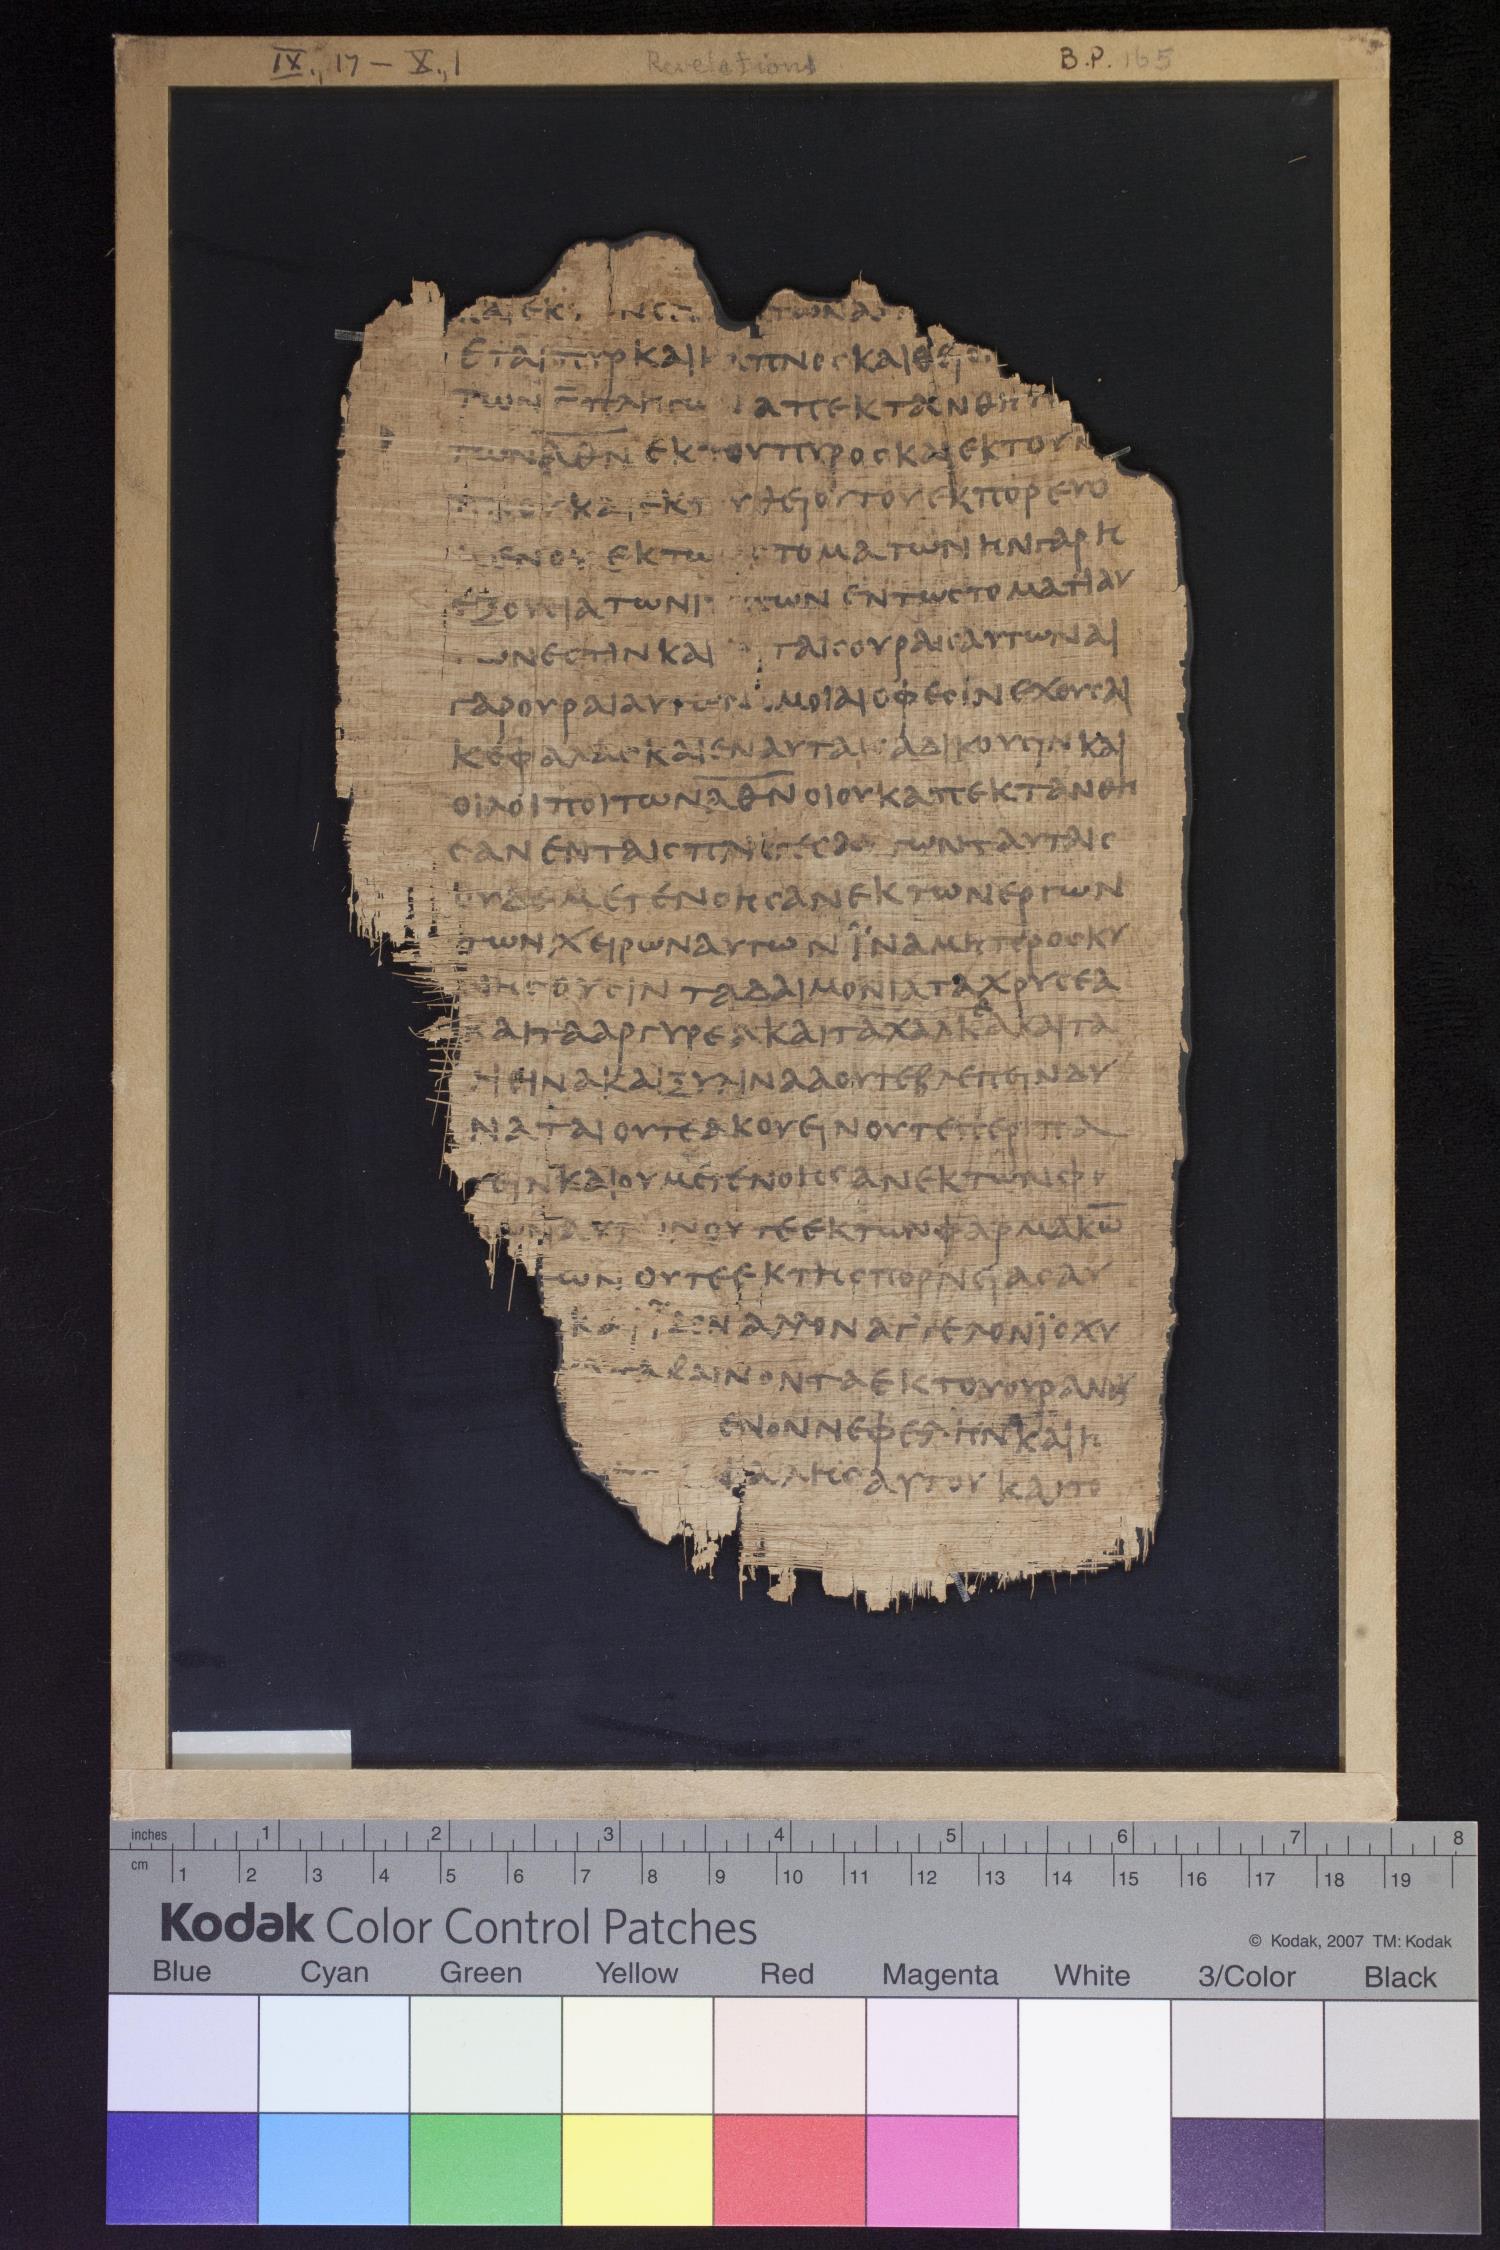 IX., 17 – X., 1 Revelations B.P. 165
ΕΤΑΙ ΠΥΡ ΚΑΙ ΚΑΠΝΟС ΚΑΙ
ΤΩΝ Γ̅ ΑΠΕΚΤΑΝΘΗ
ΤΩΝ Α̅Θ̅Ν̅ ΕΚ ΤΟΥ ΠΥΡΟС ΚΑΙ ΕΚ ΤΟΥ
ΤΟΥ ΕΚΠΟΡΕΥΟ
ΜΕΝΟΥ ΕΚ ΤΩ СΤΟΜΑΤΩΝ ΗΝ ΓΑΡ Η
ΕΞΟΥСΙΑ ΤΩΝ ΕΝ ΤΩ СΤΟΜΑΤΙ ΑΥ
ΤΩΝ ΕСΤΙΝ ΚΑΙ ΤΑΙС ΟΥΡΑΙС ΑΥΤΩΝ ΑΙ
ΓΑΡ ΟΥΡΑΙ ΟΦΕСΙΝ ΕΧΟΥСΑΙ
ΚΕΦΑΛΑС ΚΑΙ ΕΝ ΑΥΤΑΙС ΑΔΙΚΟΥСΙΝ ΚΑΙ
ΟΙ ΛΟΙΠΟΙ ΤΩΝ Α̅Θ̅Ν̅ ΟΙ ΟΥΚ ΑΠΕΚΤΑΝΘΗ
СΑΝ ΕΝ ΤΑΙС ΤΑΥΤΑΙС
ΟΥΔΕ ΜΕΤΕΝΟΗСΑΝ ΕΚ ΤΩΝ ΕΡΓΩΝ
ΤΩΝ ΧΕΙΡΩΝ ΑΥΤΩΝ ΪΝΑ ΜΗ ΠΡΟСΚΥ
ΝΗСΟΥСΙΝ ΤΑ ΔΑΙΜΟΝΙΑ ΤΑ ΧΡΥСΕΑ
ΚΑΙ ΤΑ ΑΡΓΥΡΕΑ ΚΑΙ ΤΑ ΧΑΛΚΕΑ ΚΑΙ ΤΑ
ΛΙΘΙΝΑ ΚΑΙ ΞΥΛΙΝΑ Α ΟΥΤΕ ΒΛΕΠΕΙΝ ΔΥ
ΝΑΤΑΙ ΟΥΤΕ ΑΚΟΥΕΙΝ ΟΥΤΕ ΠΕΡΙΠΑ
ΤΕΙΝ ΚΑΙ ΟΥ ΜΕΤΕΝΟΗСΑΝ ΕΚ ΤΩΝ ΦΟ
ΟΥΤΕ ΕΚ ΤΩΝ ΦΑΡΜΑΚΩ̅
ΤΩΝ ΟΥΤΕ ΕΚ ΤΗС ΠΟΡΝΕΙΑС ΑΥ
ΚΑΙ ΑΛΛΟΝ ΑΓΓΕΛΟΝ ΪСΧΥ
ΚΑΤΑΒΑΙΝΟΝΤΑ ΕΚ ΤΟΥ ΟΥΡΑΝΟΥ
ΕΝΟΝ ΝΕΦΕΛΗΝ ΚΑΙ Η
ΦΑΛΗС ΑΥΤΟΥ ΚΑΙ ΤΟ
inches 1 2 3 4 5 6 7 8
cm 1 2 3 4 5 6 7 8 9 10 11 12 13 14 15 16 17 18 19
Kodak Color Control Patches
© Kodak, 2007 TM: Kodak
Blue Cyan Green Yellow Red Magenta White 3/Color Black